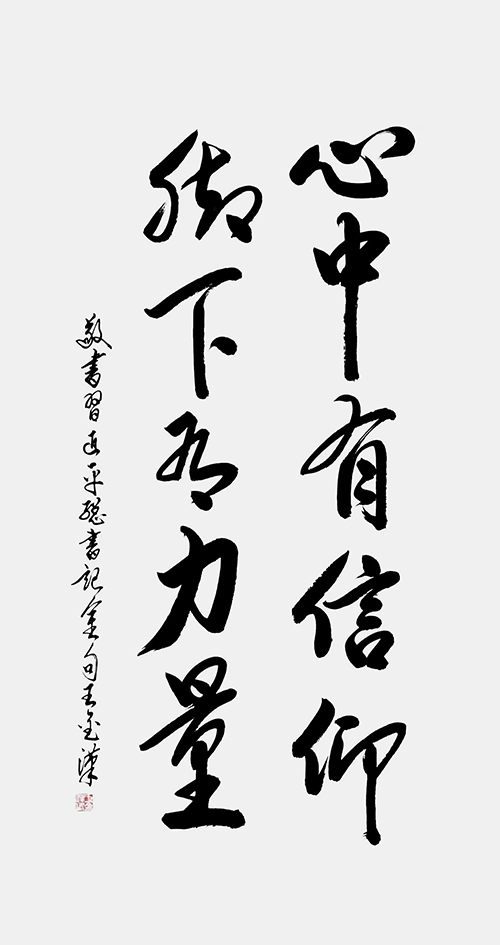 心中有信仰
脚下有力量
敬書習近平總書記金句王